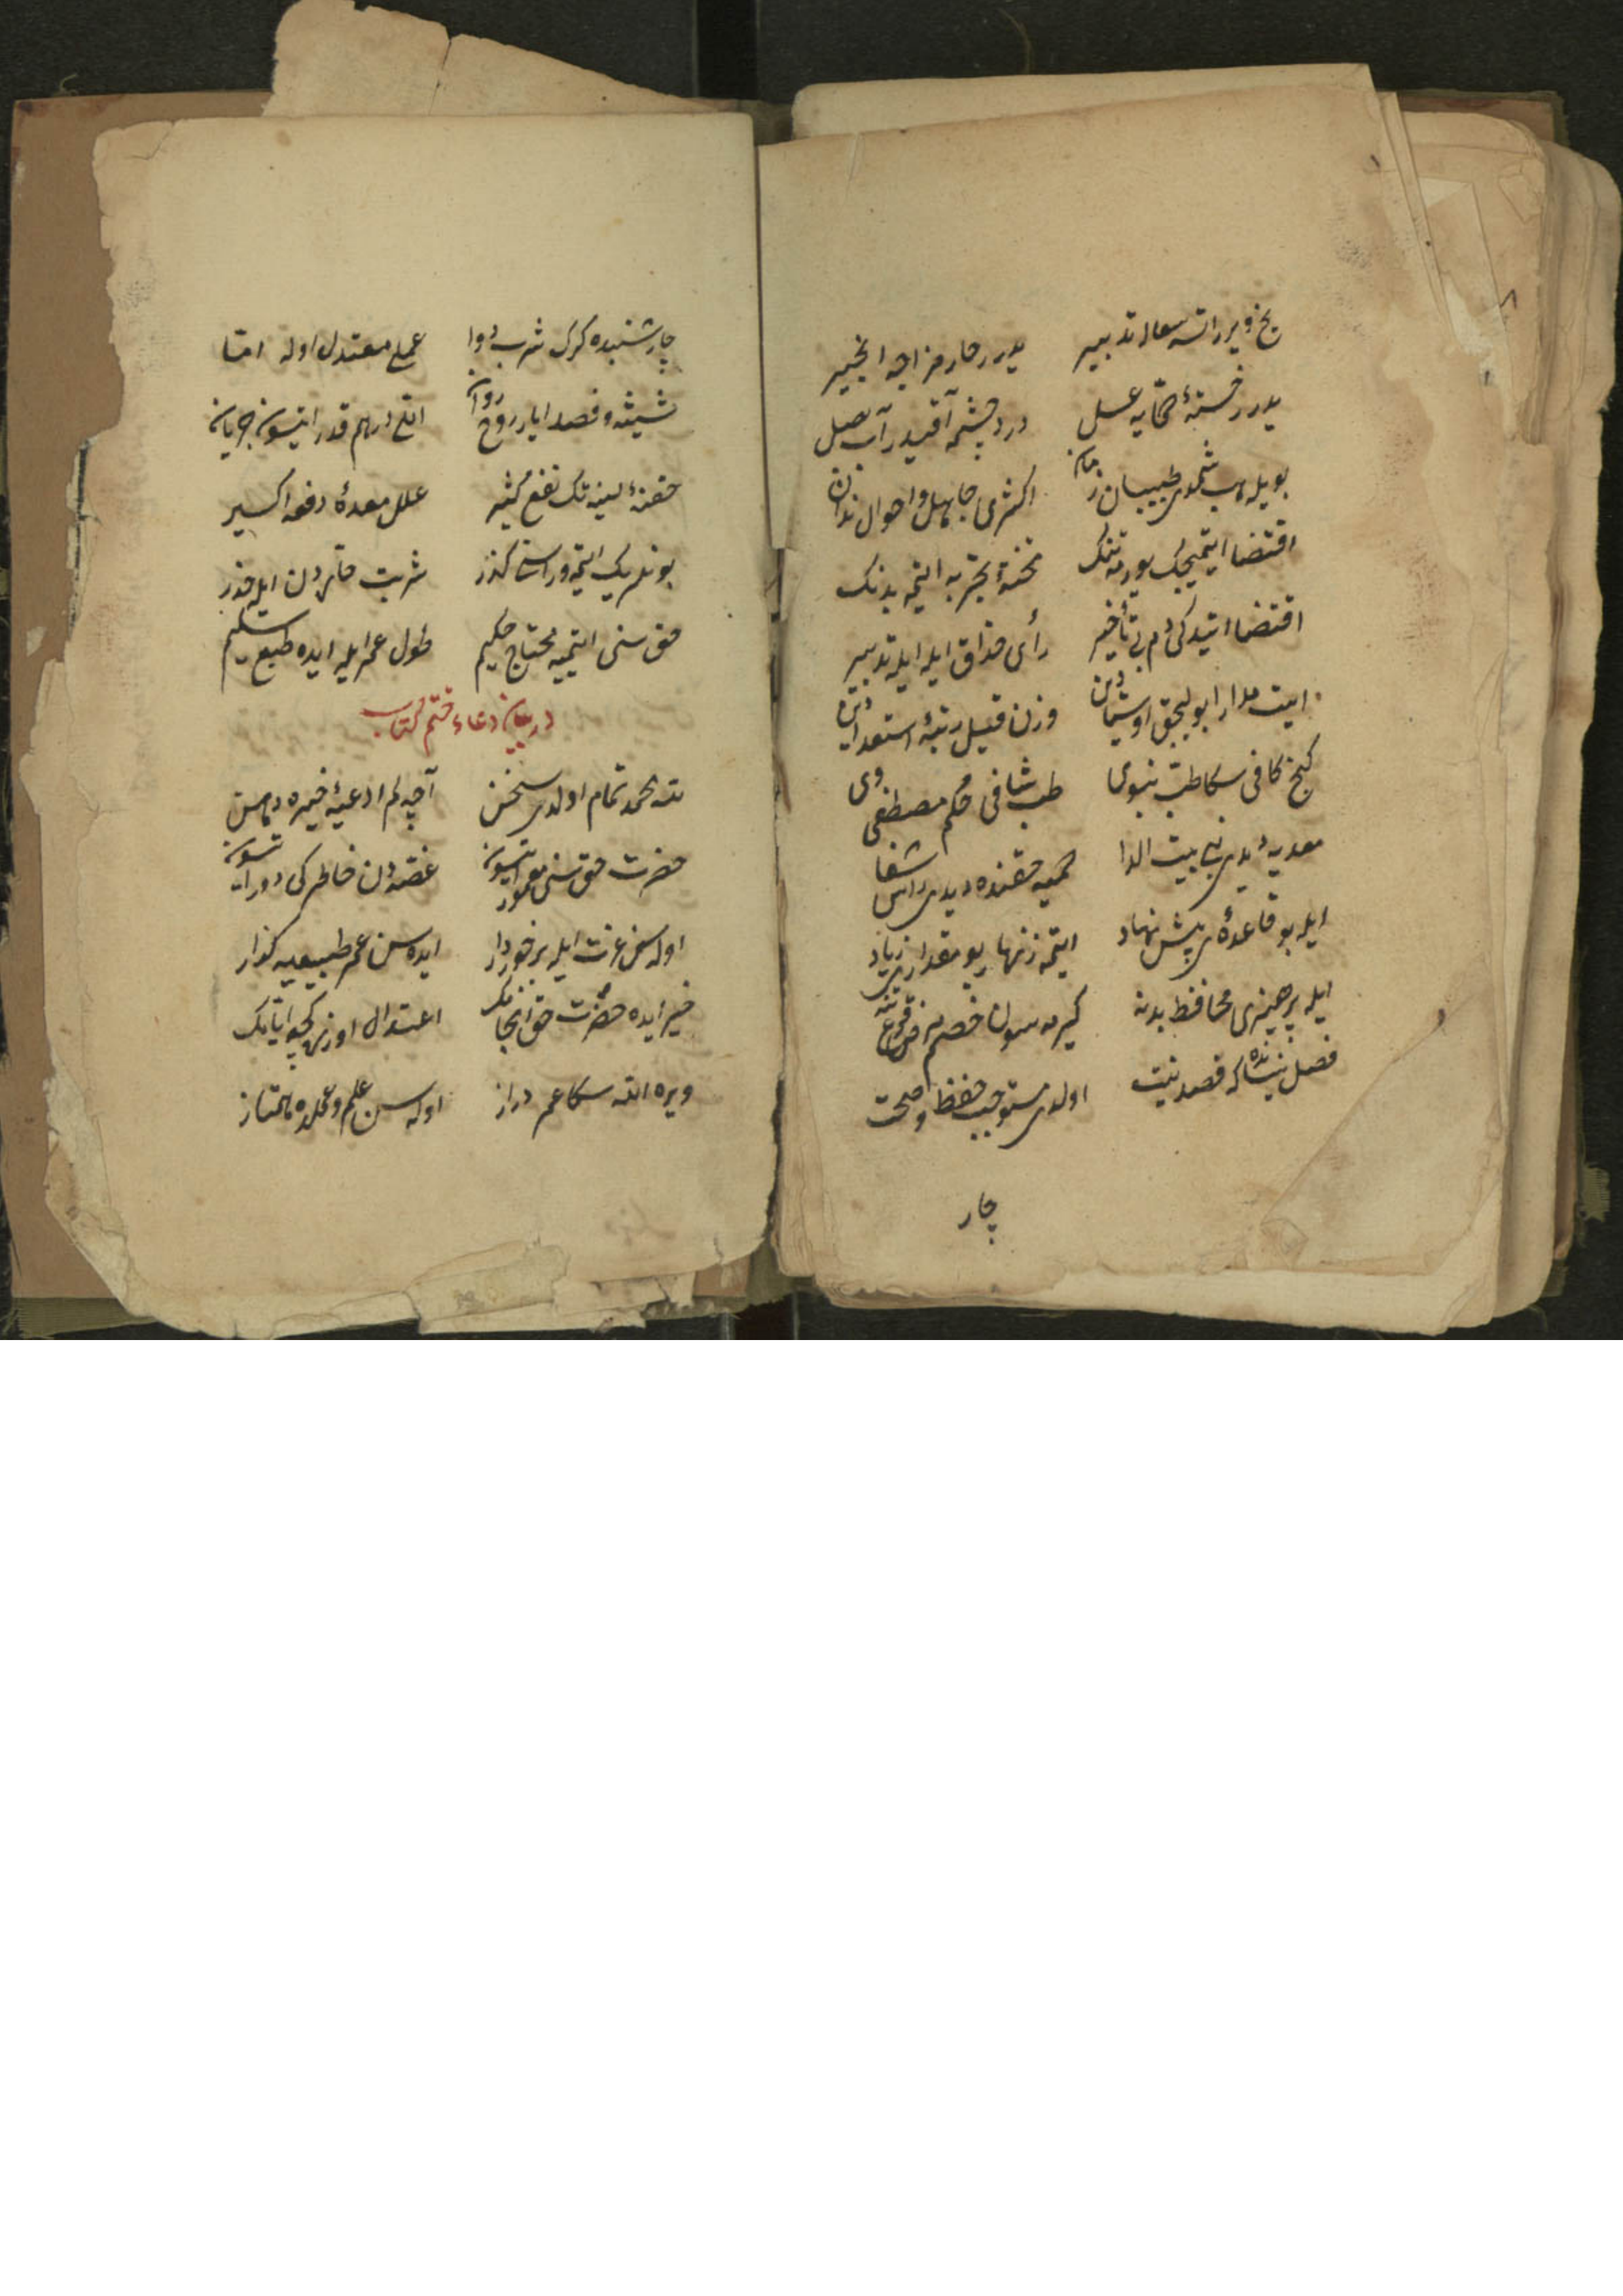 یخ ویرر اسهاله تدبیر یدرر حار مزاجه انجیر
یدرر خستهٔ حمّایه عسل درد چشمه آقیدر آب بصل
بویله در شمدی طبیبان زمان اکثری جاهل و احوال ندان
اقتضا ایتمیجک یورمه تنک تختهٔ تجربه ایتمه بدنک
اقتضا ایتدکی دم بی تأخیر رأی حذاق ایله ایله تدبیر
ایت مدارا بولیجق اوشیادن وزن قیل رتبهٔ استعدادین
کنج کافی سکا طبّ نبوی طب شافی حکم مصطفوی
معدیه دیدی نبی بیت الدا حمیه حقنده دیدی راس شفا
ایله بو قاعدهٔ پیش نهاد ایتمه زنهار یو مقداری زیاد
ایله پرهیزی محافظ بدنه کیرمسون خصم مرض قلعهٔ تنه
فصل نیسانده که قصد نیت اولدی مستوجب حفظ و صحت
چار
چارشنبده کرک شرب دوا عملی معتدل اوله امّا
شیشه و فصد ایلر روح روان اتلی درهم قدر ایتسون جریان
حقنهٔ لینه تک نفع کثیر علل معدهٔ دفعه اکسیر
بونلر یک ایتمه وراسنا کذر شربت حاردن ایله حذر
حق سنی ایتمیه محتاج حکیم طول عمر ایله ایده طبع سلیم
در بیان دعاء ختم کتاب
لله الحمد تمام اولدی سخن آچه لم ادعیهٔ خیره دهن
حضرت حق سنی معمور ایتسون غصّه دن خاطرکی دور ایتسون
اوله سن عزت ایله برخوردار ایده سن عمر طبیعیه گذار
خیر ایده حضرت حق انجامک اعتدال اوزره کچه ایامک
ویره الله سکا عمر دراز اوله سن علم و عملده ممتاز